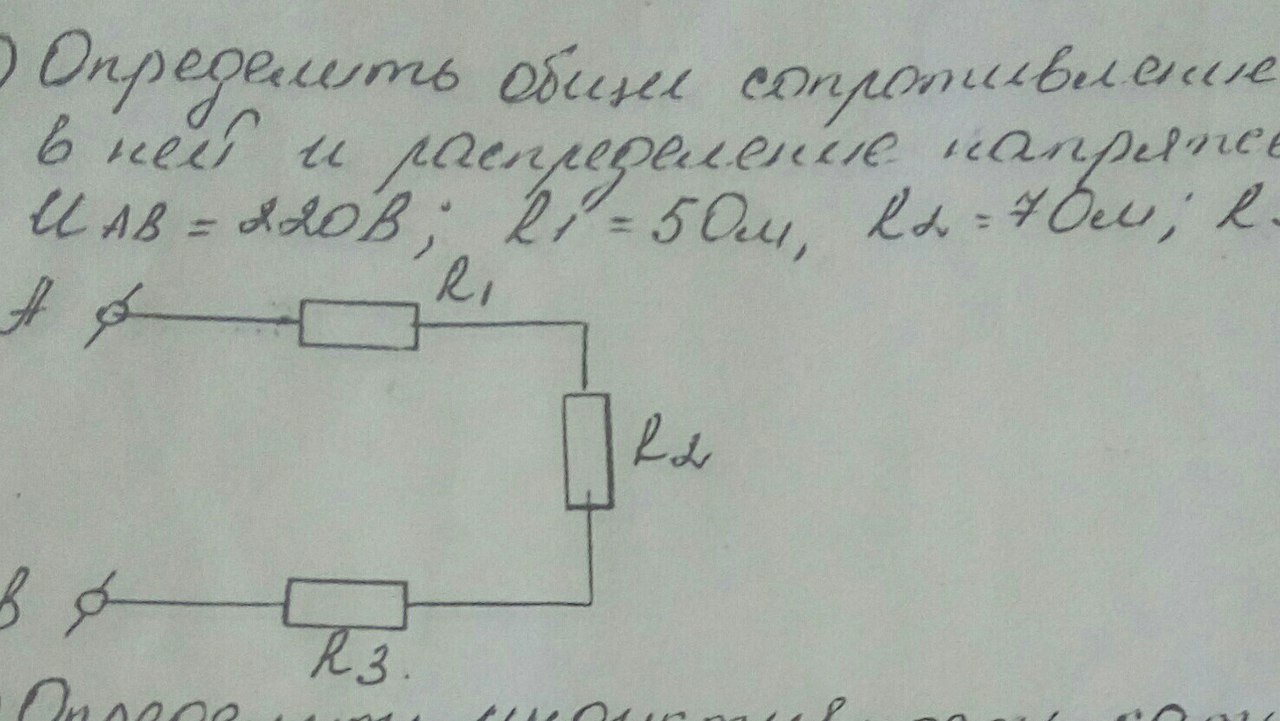 ) Определить общее сопротивление
в ней и распределение напряже
UАВ = 220В; R1 = 5Ом, R2 = 7Ом; R
A
R1
R2
B
R3.